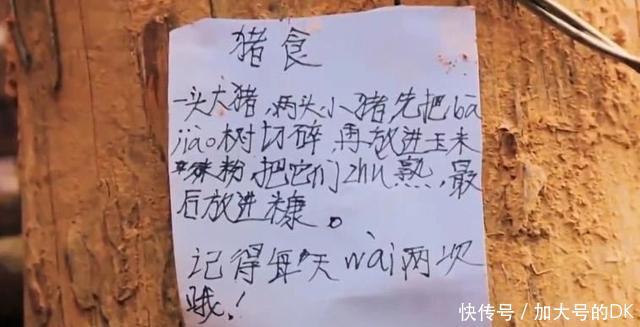 猪食
一头大猪，两头小猪先把bā
jiāo树切碎，再放进玉米
粉，把它们zhǔ熟，最
后放进糠。
记得每天wài两次
哦！
快传号/加大号的DK